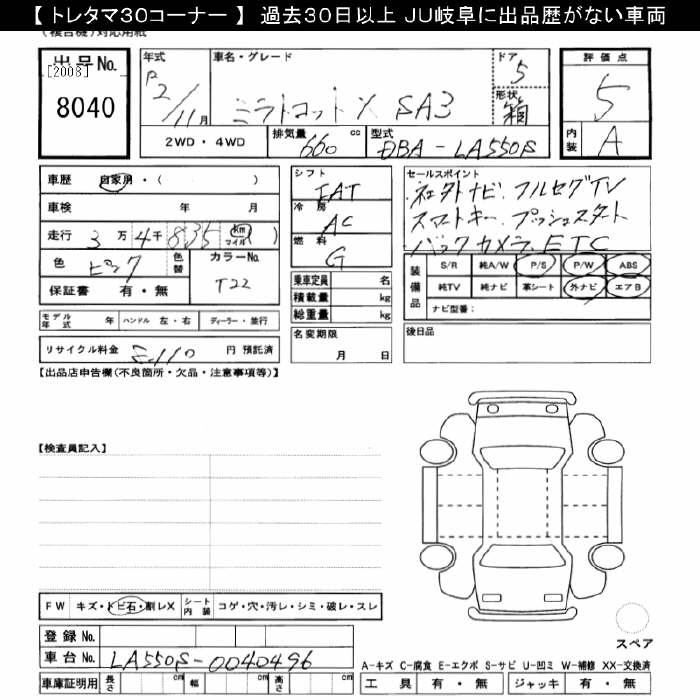 【 トレタマ30コーナー 】 過去30日以上 JU岐阜に出品歴がない車両
(複合機)対応用紙
出品No.
[2008]
8040
年式
R2/11月
車名・グレード
ミラトコットX SA3
ドア
5
形状
箱
評価点
5
内装 A
2WD・4WD
排気量 660 cc
型式 DBA-LA550S
車歴 自家用・( )
車検 年 月
走行 3万4千835 (km マイル)
色 ピンク
色替
カラーNo.
T22
保証書 有・無
シフト
FAT
冷房
AC
燃料
G
乗車定員 名
積載量 kg
総重量 kg
セールスポイント
社外ナビ.フルセグTV
スマートキー.プッシュスタート
バックカメラ.ETC
装備品
S/R 純A/W P/S P/W ABS
純TV 純ナビ 革シート 外ナビ エアB
ナビ型番:
モデル年式 年 ハンドル 左・右 ディーラー・並行
名変期限
月 日
後日品
リサイクル料金 8,110 円 預託済
【出品店申告欄(不良箇所・欠品・注意事項等)】
【検査員記入】
FW キズ・トビ石・割レX シート内装 コゲ・穴・汚レ・シミ・破レ・スレ
登録No.
車台No. LA550S-0040496
車庫証明用 長さ cm 幅 cm 高さ cm
スペア
A-キズ C-腐食 E-エクボ S-サビ U-凹ミ W-補修 XX-交換済
工具 有・無 ジャッキ 有・無